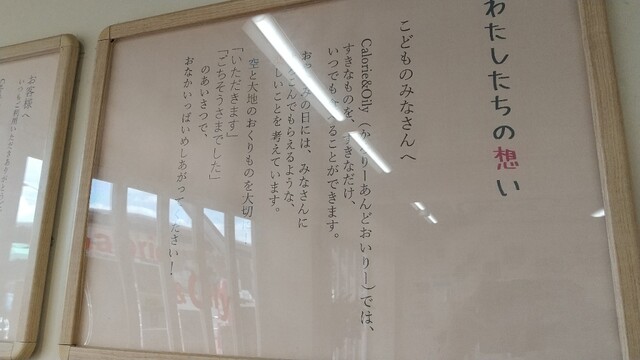 わたしたちの想い
こどものみなさんへ
Calorie&Oily（かろりーあんどおいりー）では、
すきなものを、すきなだけ、
いつでも　べることができます。
お　　みの日には、みなさんに
　こんでもらえるような、
　しいことを考えています。
空と大地のおくりものを大切
「いただきます」
「ごちそうさまでした」
のあいさつで、
おなかいっぱいめしあがっ　ください！
お客様へ
いつもご利用いただき